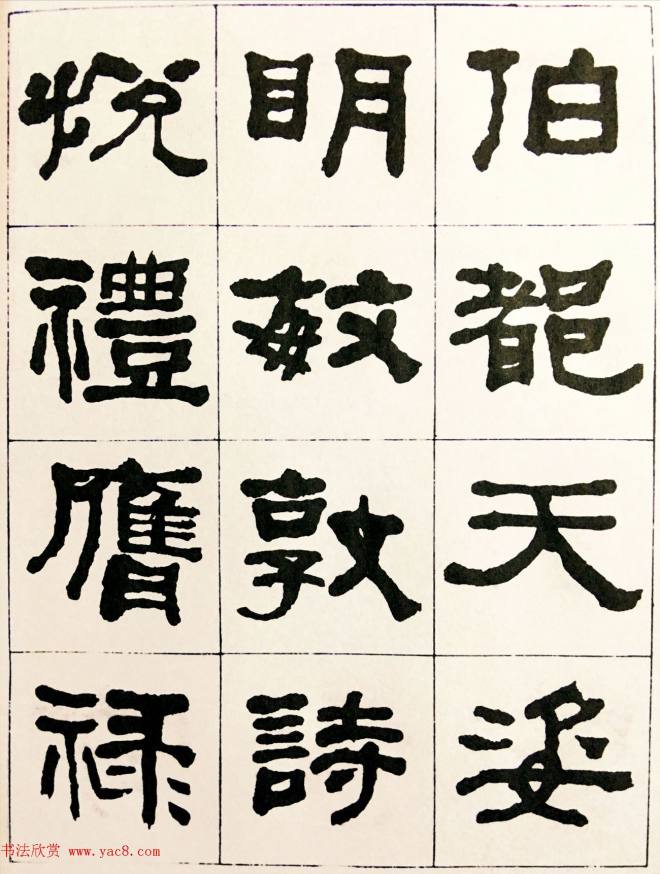 伯都天姿
明敏敦詩
悅禮膺祿
书法欣赏 www.yac8.com